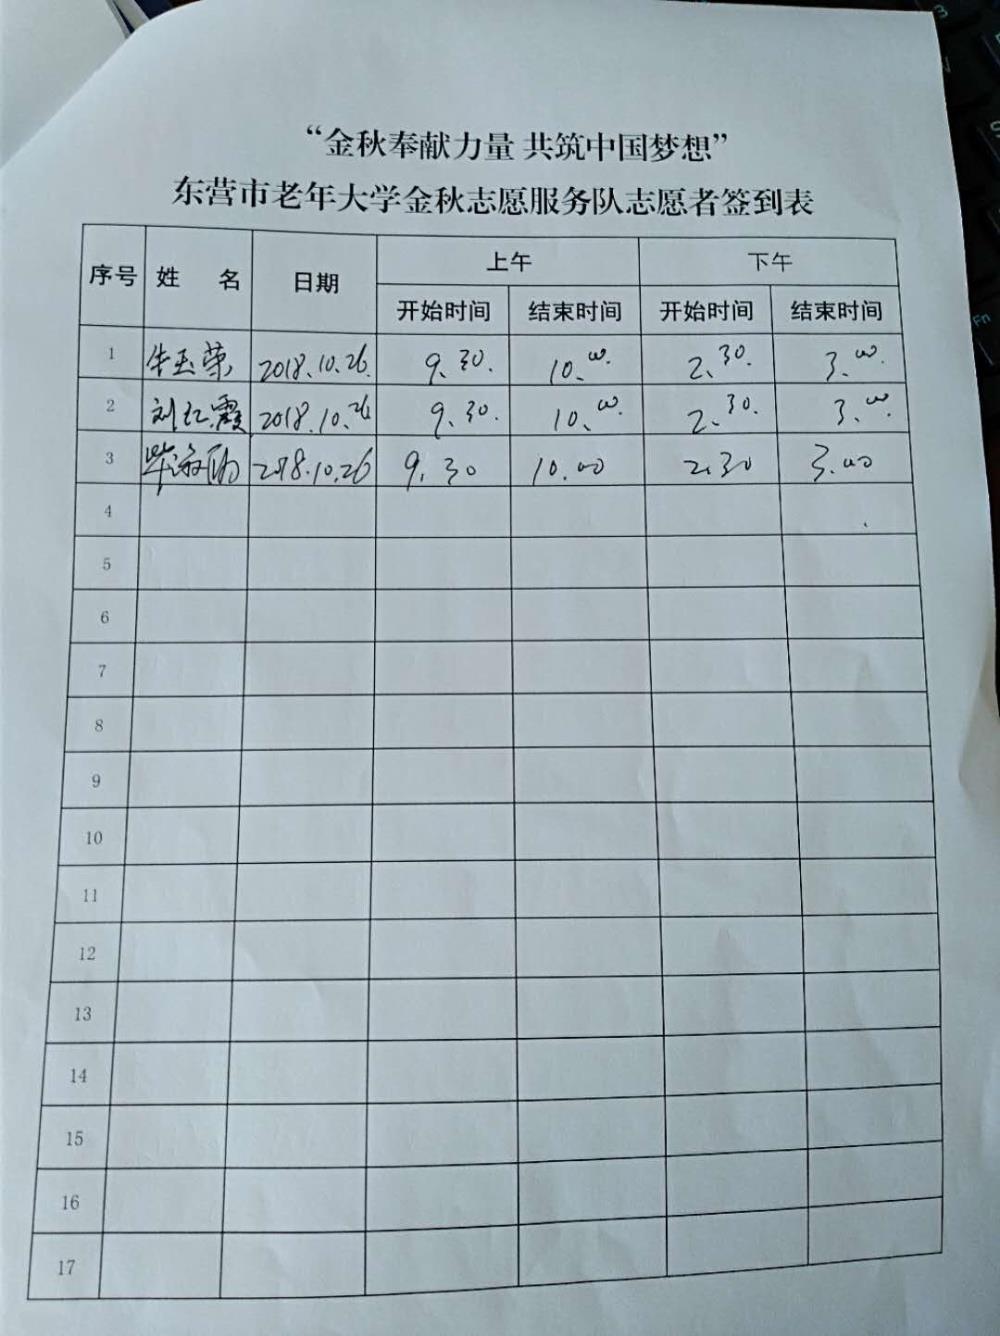 “金秋奉献力量 共筑中国梦想”
东营市老年大学金秋志愿服务队志愿者签到表
序号 姓 名 日期 上午 下午
开始时间 结束时间 开始时间 结束时间
1 牛玉荣 2018.10.26. 9.30. 10.00. 2.30. 3.00.
2 刘红霞 2018.10.26 9.30. 10.00. 2.30. 3.00.
3 2018.10.26 9.30 10.00 2.30 3.00
4
5
6
7
8
9
10
11
12
13
14
15
16
17